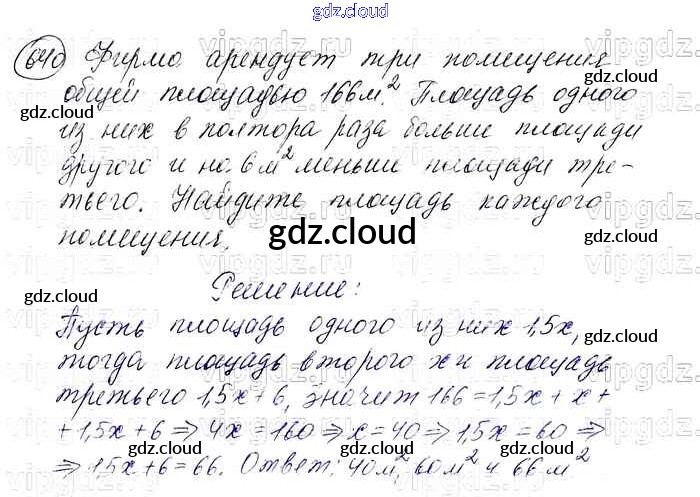 gdz.cloud
640 Фирма арендует три помещения
общей площадью 166м². Площадь одного
из них в полтора раза больше площади
другого и на 6м² меньше площади тре-
тьего. Найдите площадь каждого
помещения.
gdz.cloud
Решение:
Пусть площадь одного из них 1,5x,
тогда площадь второго x и площадь
третьего 1,5x+6, значит 166=1,5x+x+
+1,5x+6⇒4x=160⇒x=40⇒1,5x=60⇒
⇒1,5x+6=66. Ответ: 40м², 60м² и 66м²